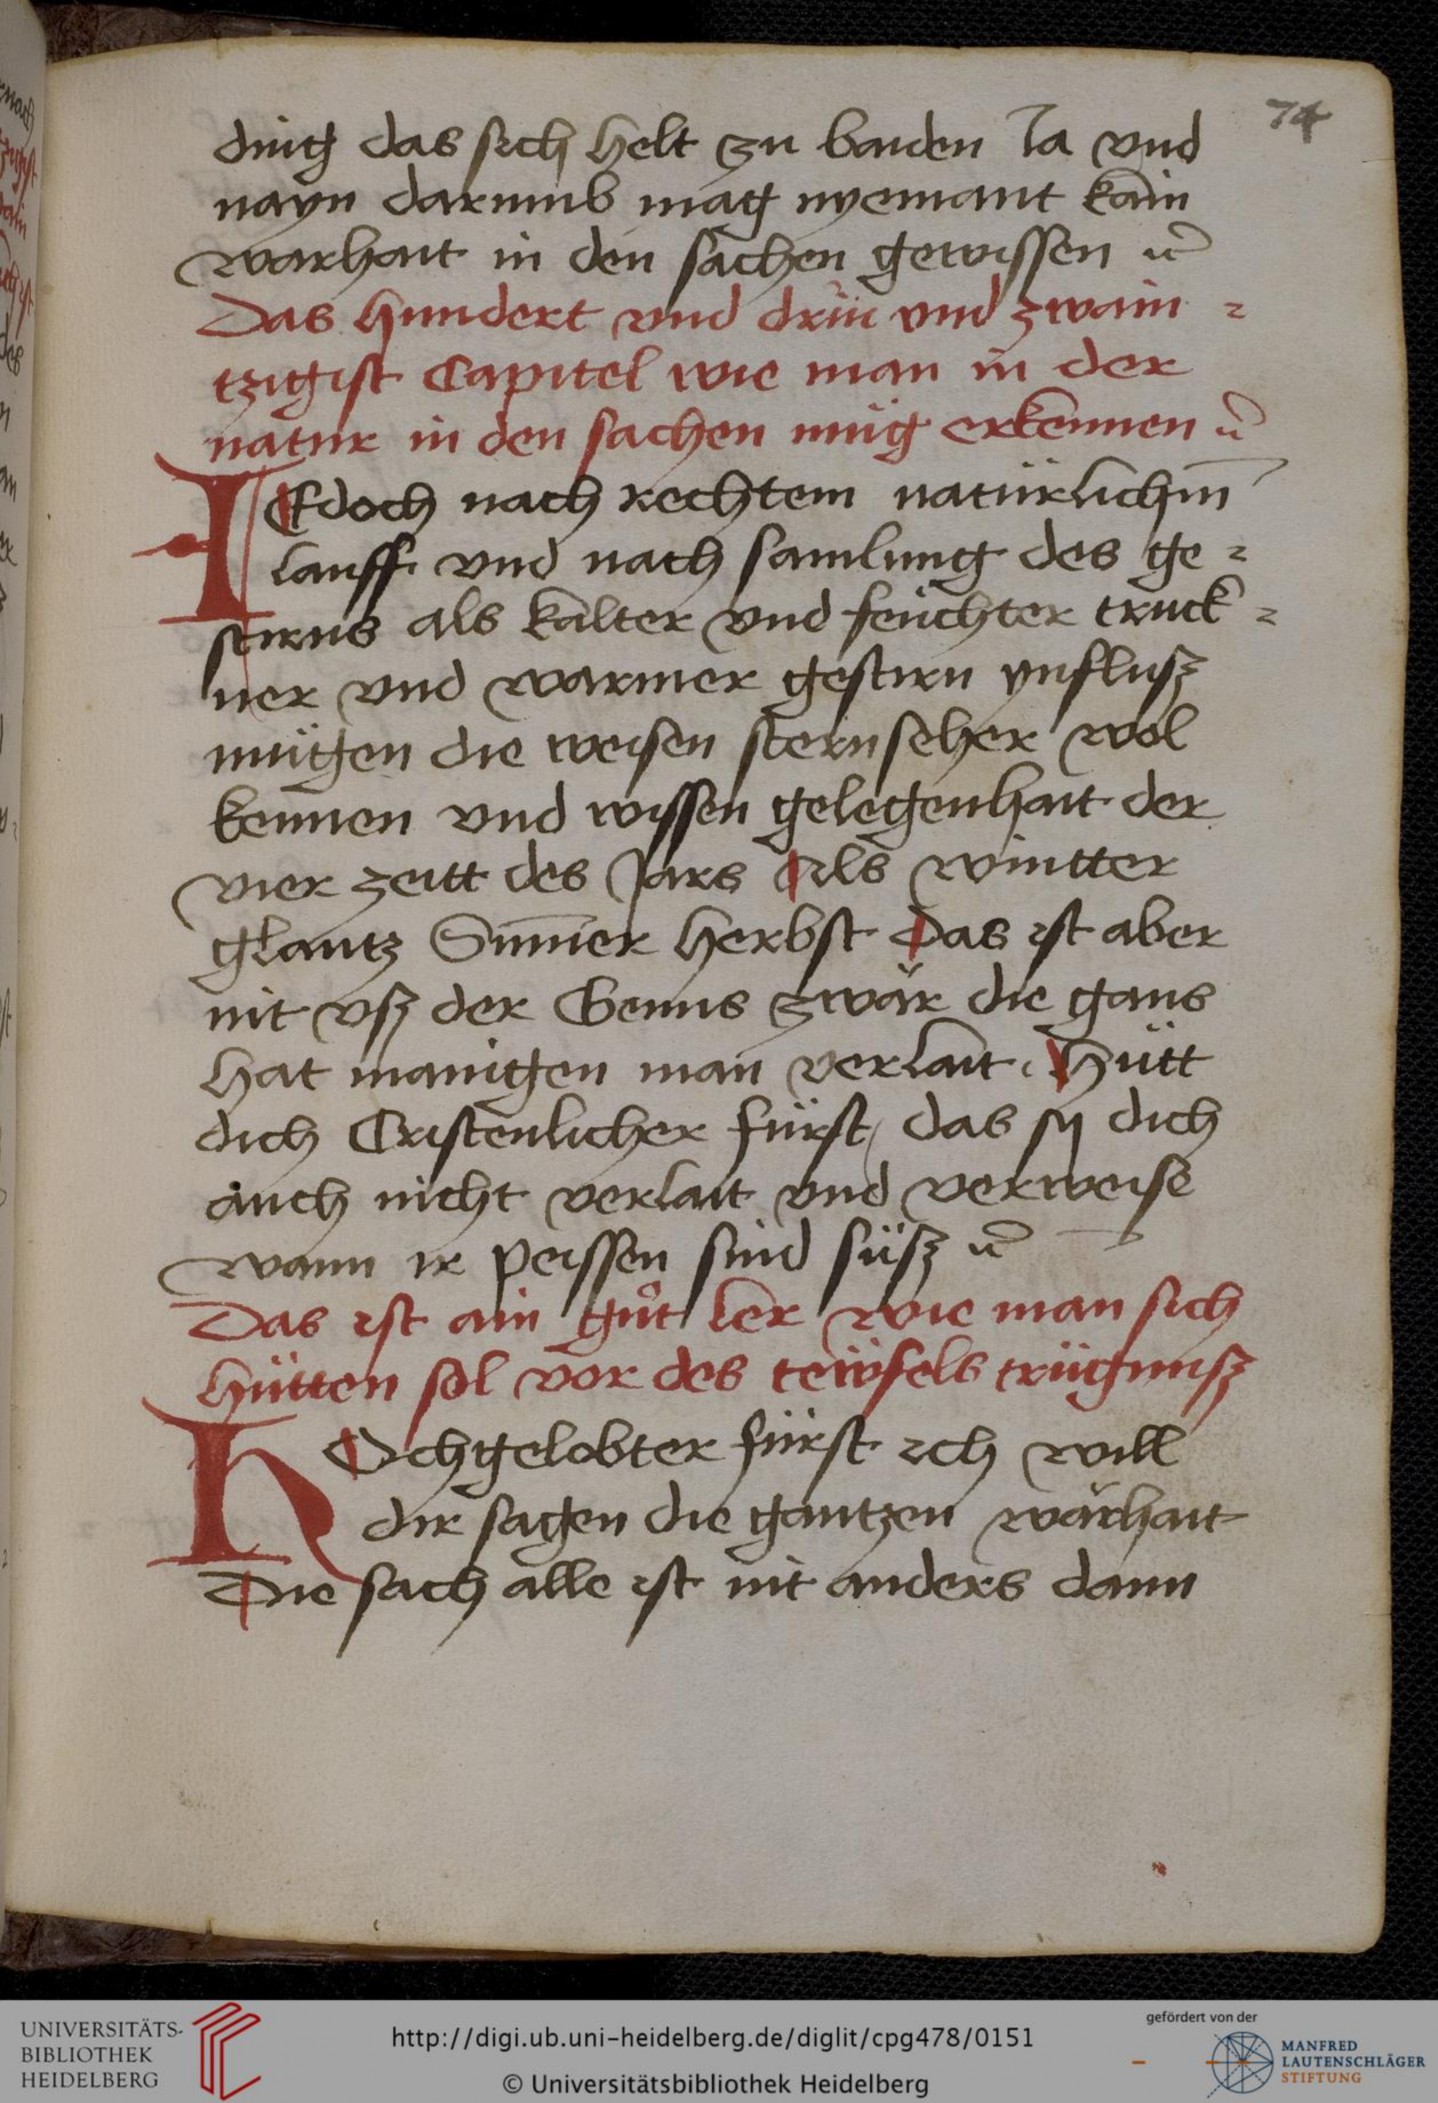 74
ding das sich helt zu baiden Ja vnd
nayn darumb mag nyemant kain
warhait in den sachen gewissen ꝛc
Das hundert vnd drüü vnd zwain⸗
tzigist Capitel wie man in der
natur in den sachen müg erkennen ꝛc
IEdoch nach rechtem natürlichm̅
lauff vnd nach samlung des ge⸗
stirns als kalter vnd feüchter truck⸗
ner vnd warmer gestirn ynflusz
mügen die weisen sternseher wol
kennen vnd wissen gelegenhait der
vier zeitt des Jars Als wintter
glantz Sum̅er herbst Das ist aber
nit vsz der Genns zwär die gans
hat manigen man verlait. Hütt
dich Cristenlicher fürst / das sy dich
auch nicht verlait vnd verweise
wann ir peissen sind süsz ꝛc
Das ist ain gůt ler wie man sich
hütten sol vor des teüfels trügnusz
HOchgelobter fürst ich will
dir sagen die gantzen wärhait
Die sach alle ist nit anders dann
UNIVERSITÄTS-
BIBLIOTHEK
HEIDELBERG
http://digi.ub.uni-heidelberg.de/diglit/cpg478/0151
© Universitätsbibliothek Heidelberg
gefördert von der
MANFRED
LAUTENSCHLÄGER
STIFTUNG